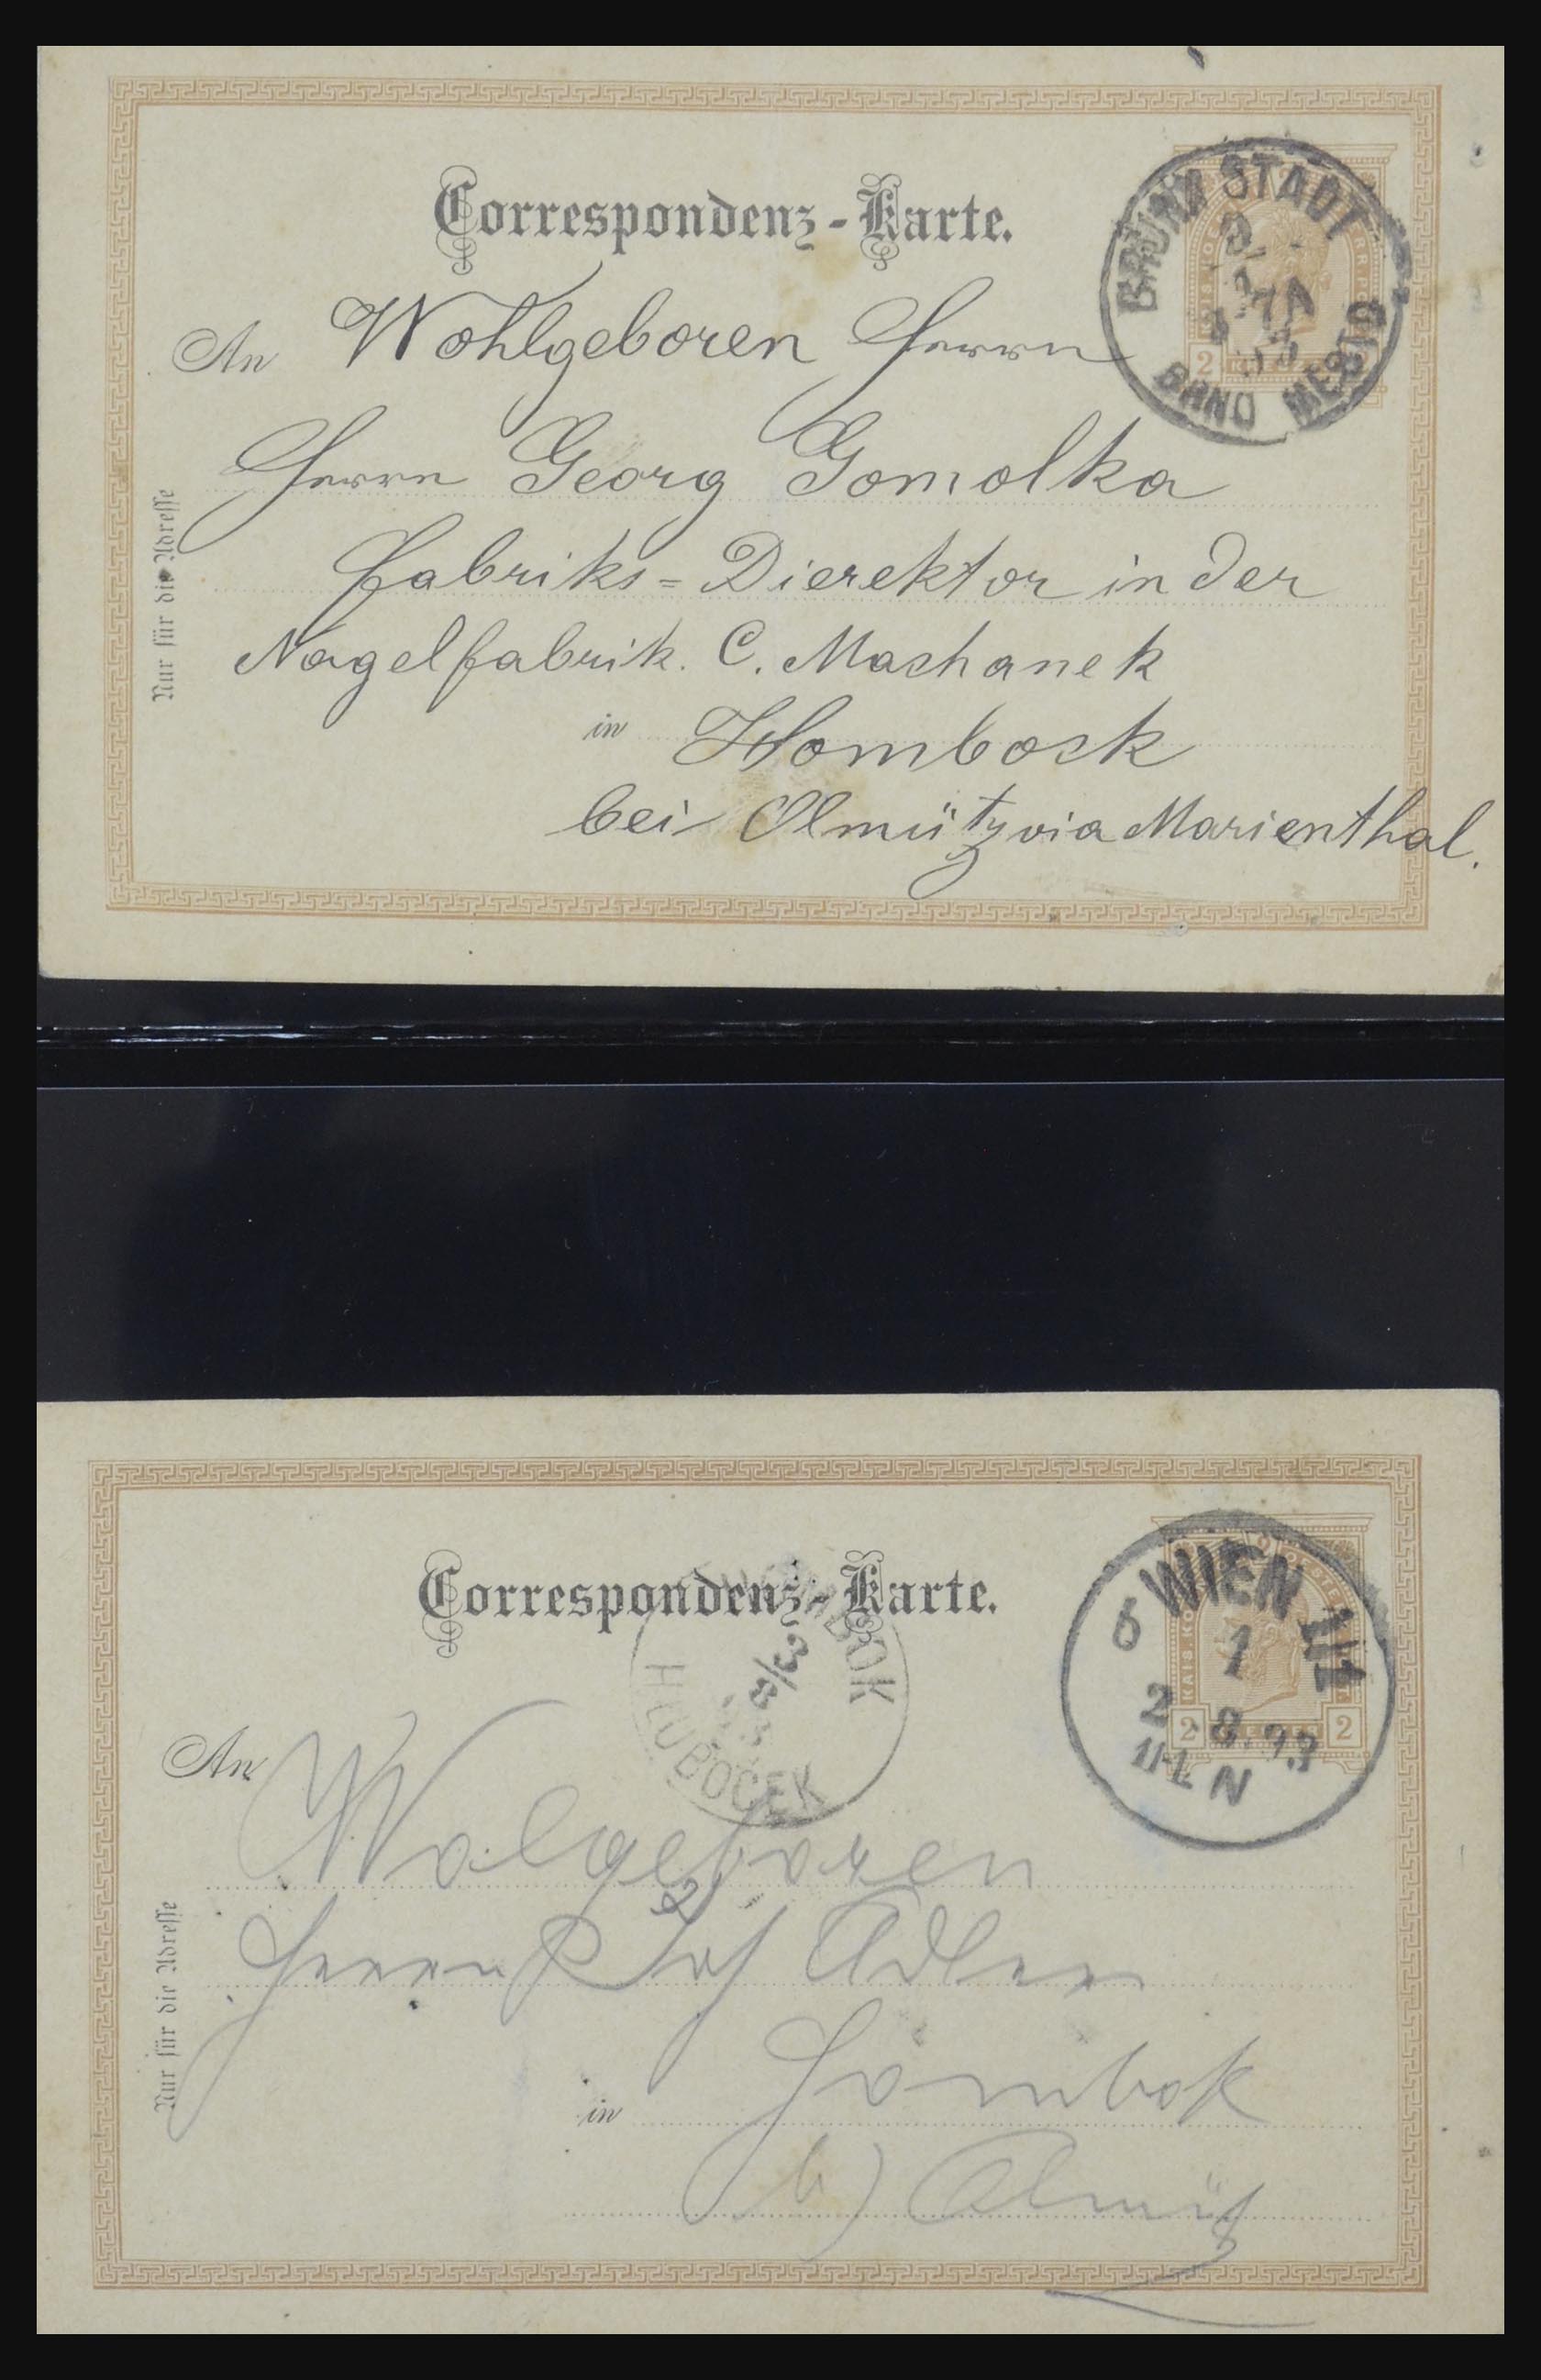 Correspondenz-Karte.
BRÜNN STADT
BRNO MĚSTO
2
An Wohlgeboren Herrn
Herrn Georg Gomolka
Fabriks=Dierektor in der
Nagelfabrik. C. Machanek
in Hombock
bei Olmütz via Marienthal.
Nur für die Adresse
Correspondenz-Karte.
WIEN 1/1
6 1
2.8.93
11-12 N
2 2
KAIS.KO
BOK
3/8
93
HLUBOCEK
An Wolgeboren
Herrn Adler
in Hombok
b) Olmütz
Nur für die Adresse